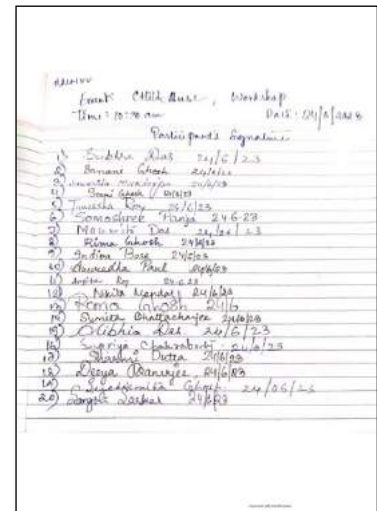 Event Child Abuse, Workshop
Time: 10:30 am Date: 24/6/2023
Participant's Signature
1) Subhra Das 24/6/23
2) Banani Ghosh 24/6/23
3)
4) Ghosh 24/6/23
5) Roy 24/6/23
6) Somoshree Panja 24-6-23
7) Moumita Das 24/06/23
8) Rima Ghosh 24/6/23
9) Indira Bose 24/6/23
10) Anuradha Paul 24/6/23
11) Roy 24.6.23
12) Nikita Mandal 24/6/23
13) Roma Ghosh 24/6
14) Sumita Bhattacharjee 24/6/23
15) Olibhia Das 24/6/23
16) Supriya Chakraborty 24/6/23
17) Sharmi Dutta 24/6/23
18) Deeya Banerjee 24/6/23
19) Ghosh 24/06/23
20) Sarkar 24/6/23